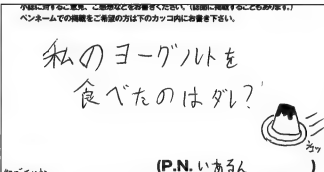 小誌に対するご意見、ご感想などをお書きください。(誌面に掲載することもあります。)
ペンネームでの掲載をご希望の方は下のカッコ内にお書き下さい。
私のヨーグルトを
食べたのはダレ?
(P.N. いあるん )